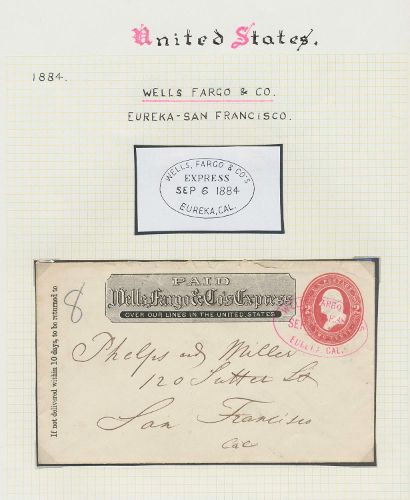 United States.
1884.
WELLS FARGO & CO.
EUREKA-SAN FRANCISCO.
WELLS, FARGO & CO'S
EXPRESS
SEP 6 1884
EUREKA, CAL.
PAID
Wells, Fargo & Co's Express
OVER OUR LINES IN THE UNITED STATES
If not delivered within 10 days, to be returned to
8
SEP
EUREKA, CAL.
Phelps and Miller
120 Sutter St
San Francisco
Cal